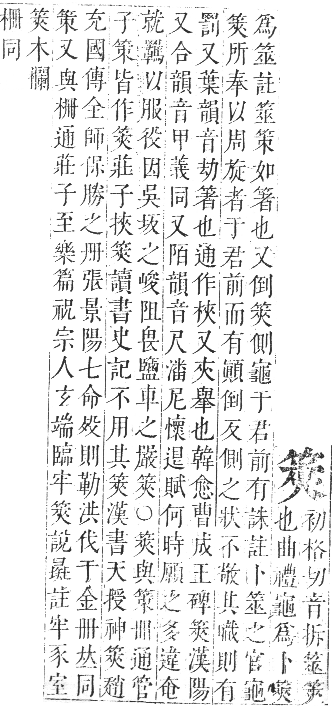 筴
初格切音拆筮筴
也曲禮龜爲卜筴
爲筮註筮策如箸也又倒筴側龜于君前有誅註卜筮之官龜
筴所奉以周旋者于君前而有顚倒反側之狀不敬其職則有
罰又葉韻音劫箸也通作梜又夾舉也韓愈曹成王碑筴漢陽
又合韻音甲義同又陌韻音尺潘尼懷退賦何時願之多違奄
就羈以服役困吳坂之峻阻畏鹽車之嚴筴○筴與策冊通管
子策皆作筴莊子挾筴讀書史記不用其筴漢書天授神筴趙
充國傳全師保勝之冊張景陽七命則勒洪伐于金冊𠀤同
策又與柵通莊子至樂篇祝宗人玄端臨牢筴說彘註牢豕室
筴木欄
柵同